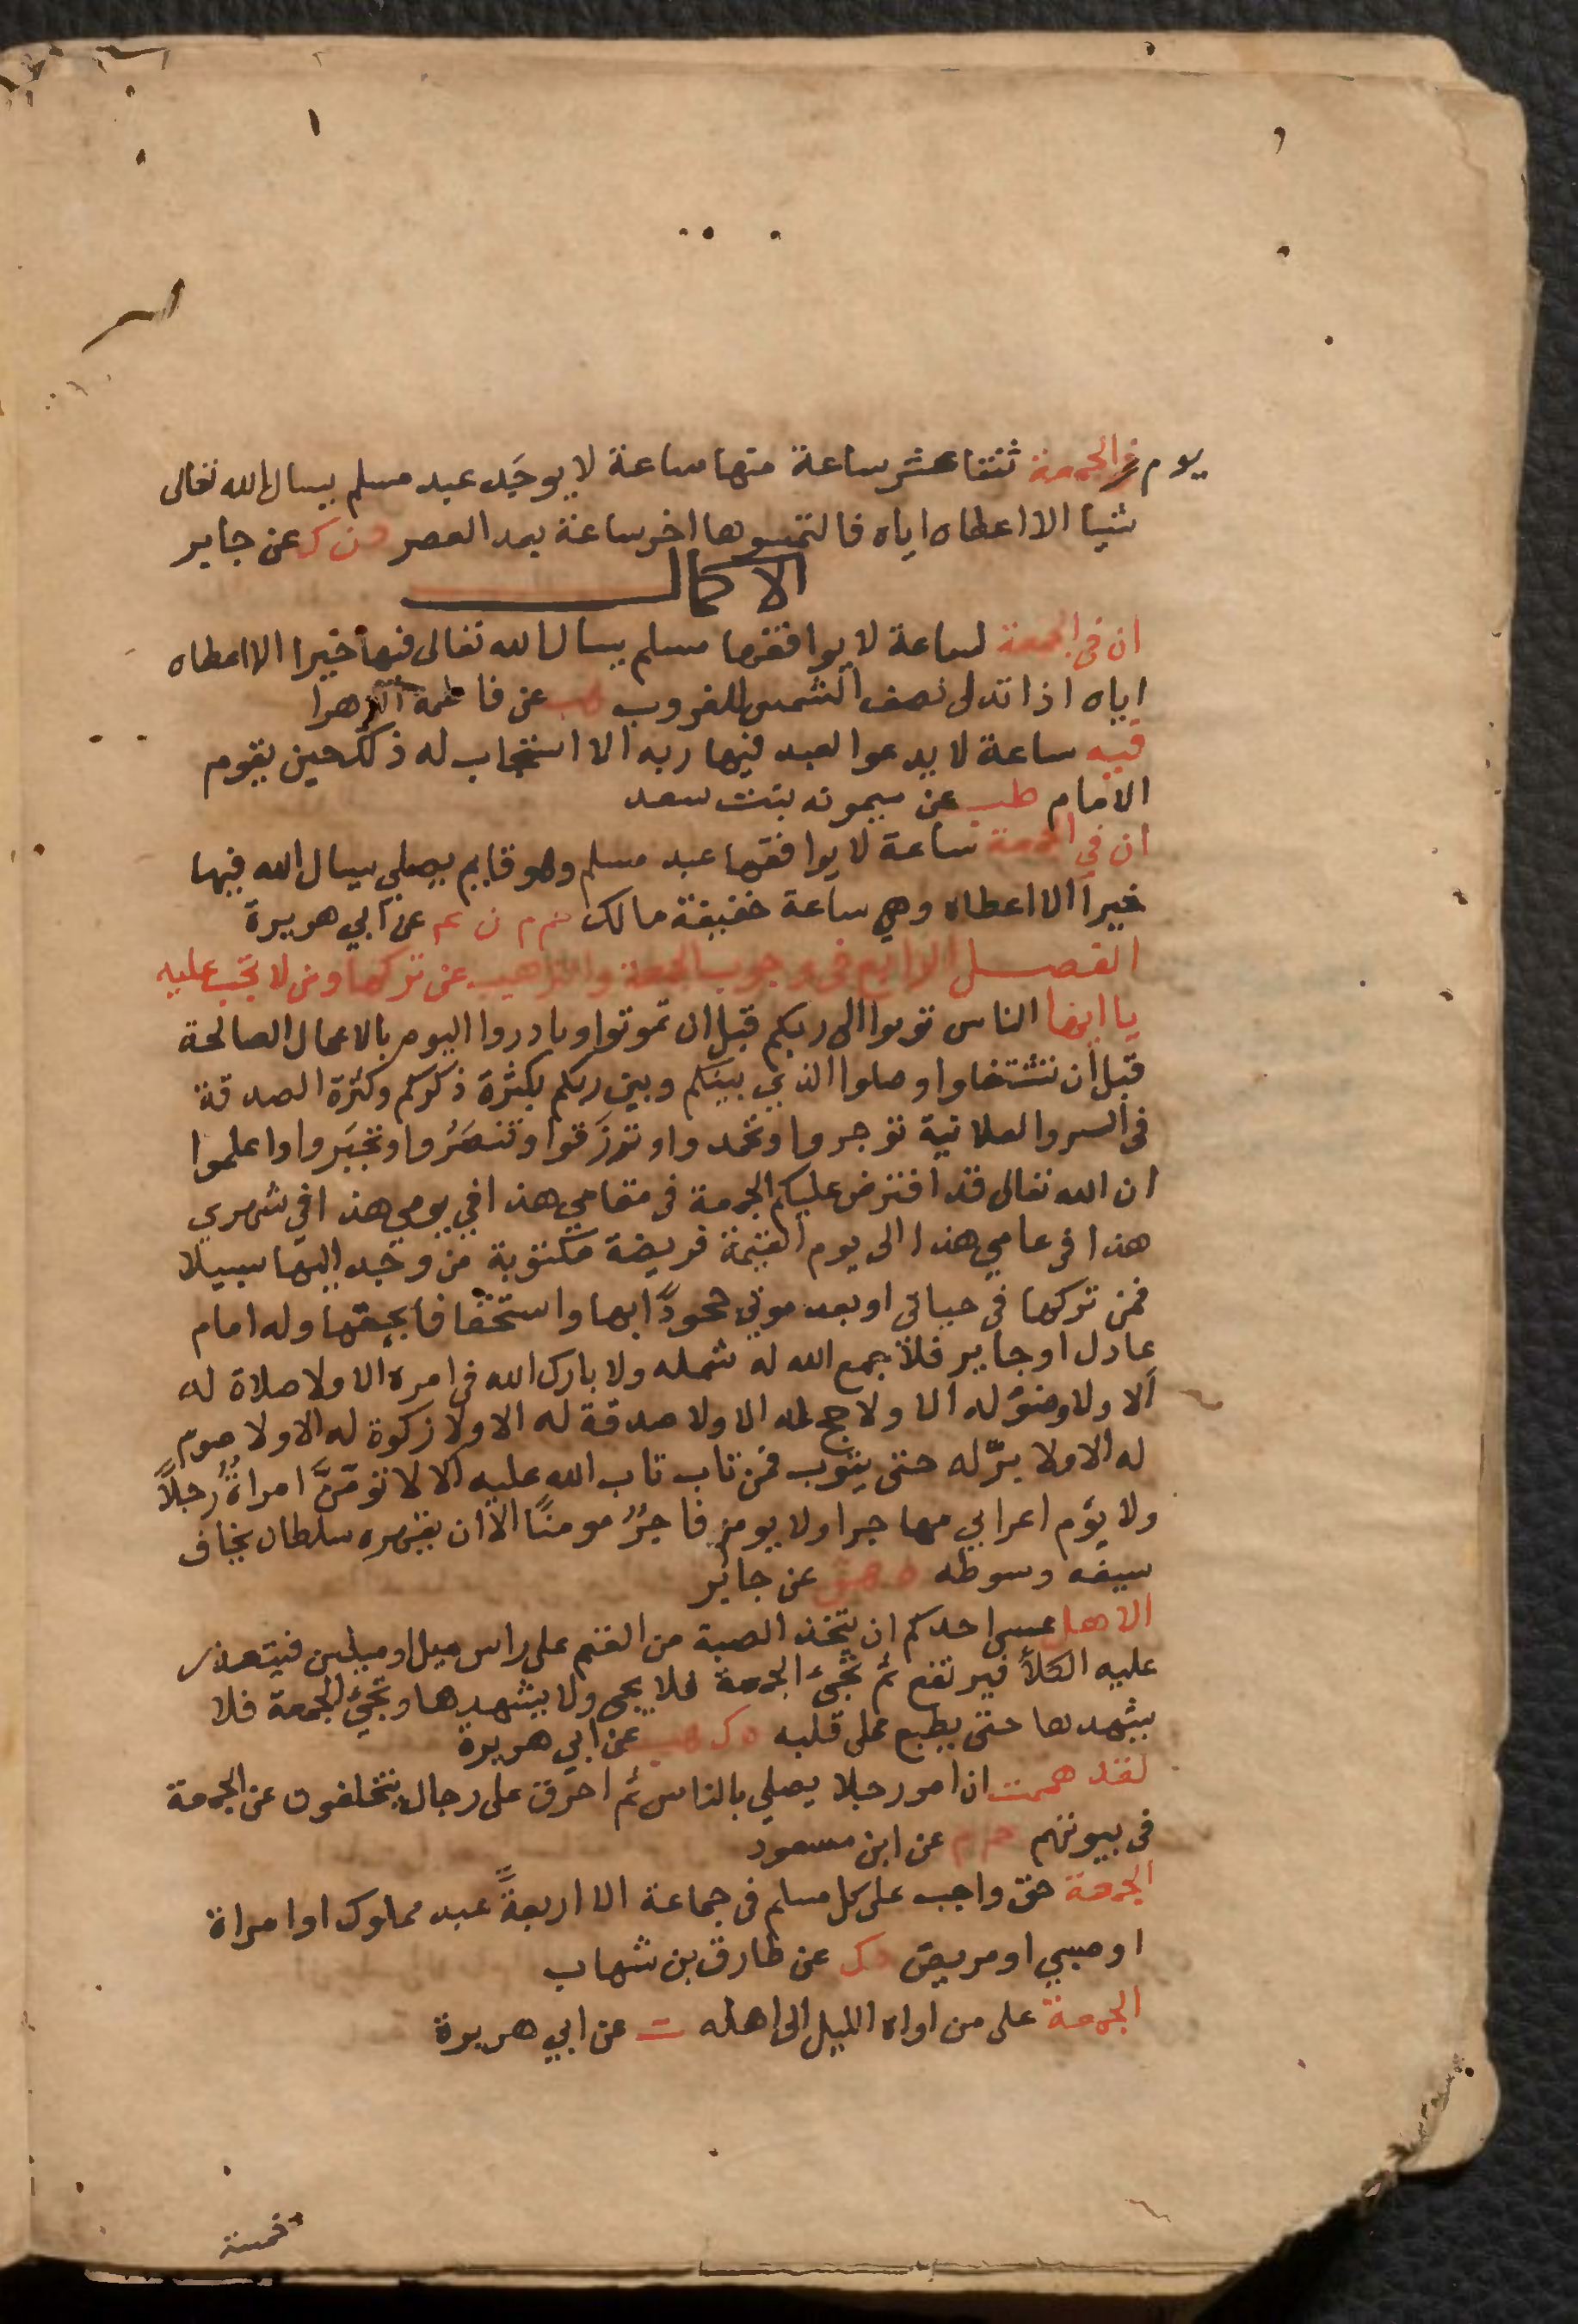 يوم الجمعة ثنتا عشر ساعة منها ساعة لا يوجَد عبد مسلم يسال الله تعالى
شيا الا اعطاه اياه فالتمسوها اخر ساعة بعد العصر د ن ك عن جابر
الاكمال
ان في الجمعة لساعة لا يوافقها مسلم يسال الله تعالى فيها خيرا الا اعطاه
اياه اذا تدلى نصف الشمس للغروب هب عن فاطمة الزهرا
فيه ساعة لا يدعوا العبد فيها ربه الا استجاب له ذلك حين يقوم
الامام طب عن ميمونه بنت سعد
ان في الجمعة ساعة لا يوافقها عبد مسلم وهو قايم يصلي يسال الله فيها
خيرا الا اعطاه وهي ساعة خفيفة مالك حم م ن عن ابي هريرة
الفصل الرابع في وجوب الجمعة والترهيب عن تركها ومن لا تجب عليه
يا ايها الناس توبوا الى ربكم قبل ان تموتوا وبادروا اليوم بالاعمال الصالحة
قبل ان تشتغلوا وصلوا الذي بينكم وبين ربكم بكثرة ذكركم وكثرة الصدقة
في السر والعلانية توجروا وتحمدوا وترزَقوا وتنصَرُوا وتجبَروا واعلموا
ان الله تعالى قد افترض عليكم الجمعة في مقامي هذا في يومي هذا في شهري
هذا في عامي هذا الى يوم القيمة فريضة مكتوبة من وجد اليها سبيلا
فمن تركها في حياتي او بعد موتي جحودًا بها واستخفافا بحقها وله امام
عادل او جاير فلا جمع الله له شمله ولا بارك الله في امره الا ولا صلاة له
الا ولا وضوْ له الا ولا حج له الا ولا صدقة له الا ولا زكوة له الا ولا صوم
له الا ولا برّ له حتى يتوب فمن تاب تاب الله عليه الا لا تؤمَّنَّ امراةٌ رجلاً
ولا يؤم اعرابي مهاجرا ولا يومن فاجرٌ مومنًا الا ان يقهره سلطان يخاف
سيفه وسوطه ه هق عن جابر
الا هل عسى احدكم ان يتخذ الصبة من الغنم على راس ميل او ميلين فيتعذر
عليه الكلأ فيرتفع ثم تجئ الجمعة فلا يجى ولا يشهدها وتجئ الجمعة فلا
يشهدها حتى يطبع على قلبه ه ك هب عن ابي هريرة
لقد هممت ان امر رجلا يصلي بالناس ثم احرق على رجال يتخلفون عن الجمعة
في بيوتهم حم م عن ابن مسعود
الجمعة حق واجب على كل مسلم في جماعة الا اربعةً عبد مملوك او امراة
او صبي او مريض د ك عن طارق بن شهاب
الجمعة على من اواه الليل الى اهله ت عن ابي هريرة
خمسة